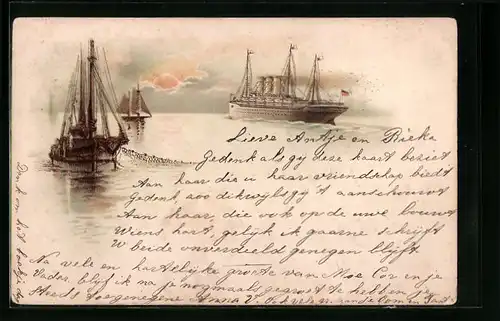 Lieve Antje en Rieke
Gedenk als gij deze kaart beziet
Aan haar die u haar vriendschap biedt
Gedenk, zoo dikwijls gij 't aanschouwt
Aan haar, die ook op de uwe bouwt
Wiens hart, gelijk ik gaarne schrijft
U beide onverdield genegen blijft
Na vele en hartelijke groete van Moe Cor en je
Vader, blijf ik na je nogmaals gegroet te hebben je
Steeds toegenegene Anna V.
Denk om het